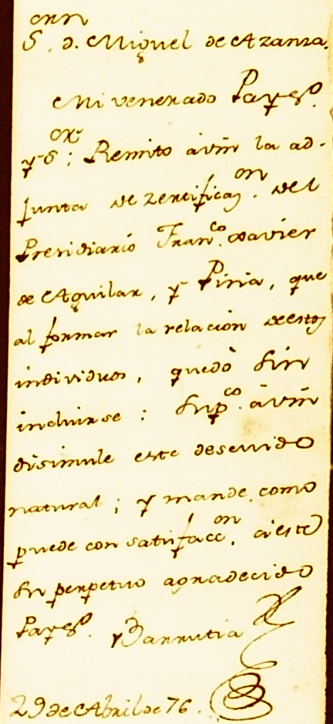 S.^or d. Miguel de Azanza.
Mi venerado Pays.^o
y S.^or; Remito à vm la ad-
junta de zertificaz.^on del
Presidiario Fran.^co Xavier
de Aguilar, y Piria, que
al formar la relacion destos
individuos, quedò sin
incluirse: Sup.^co à vm
disimule este descuido
natural; y mande como
puede con satisfacc.^on, a este
su perpetuo agradecido
Pays.^o y Barrutia
29 de Abril de 76.